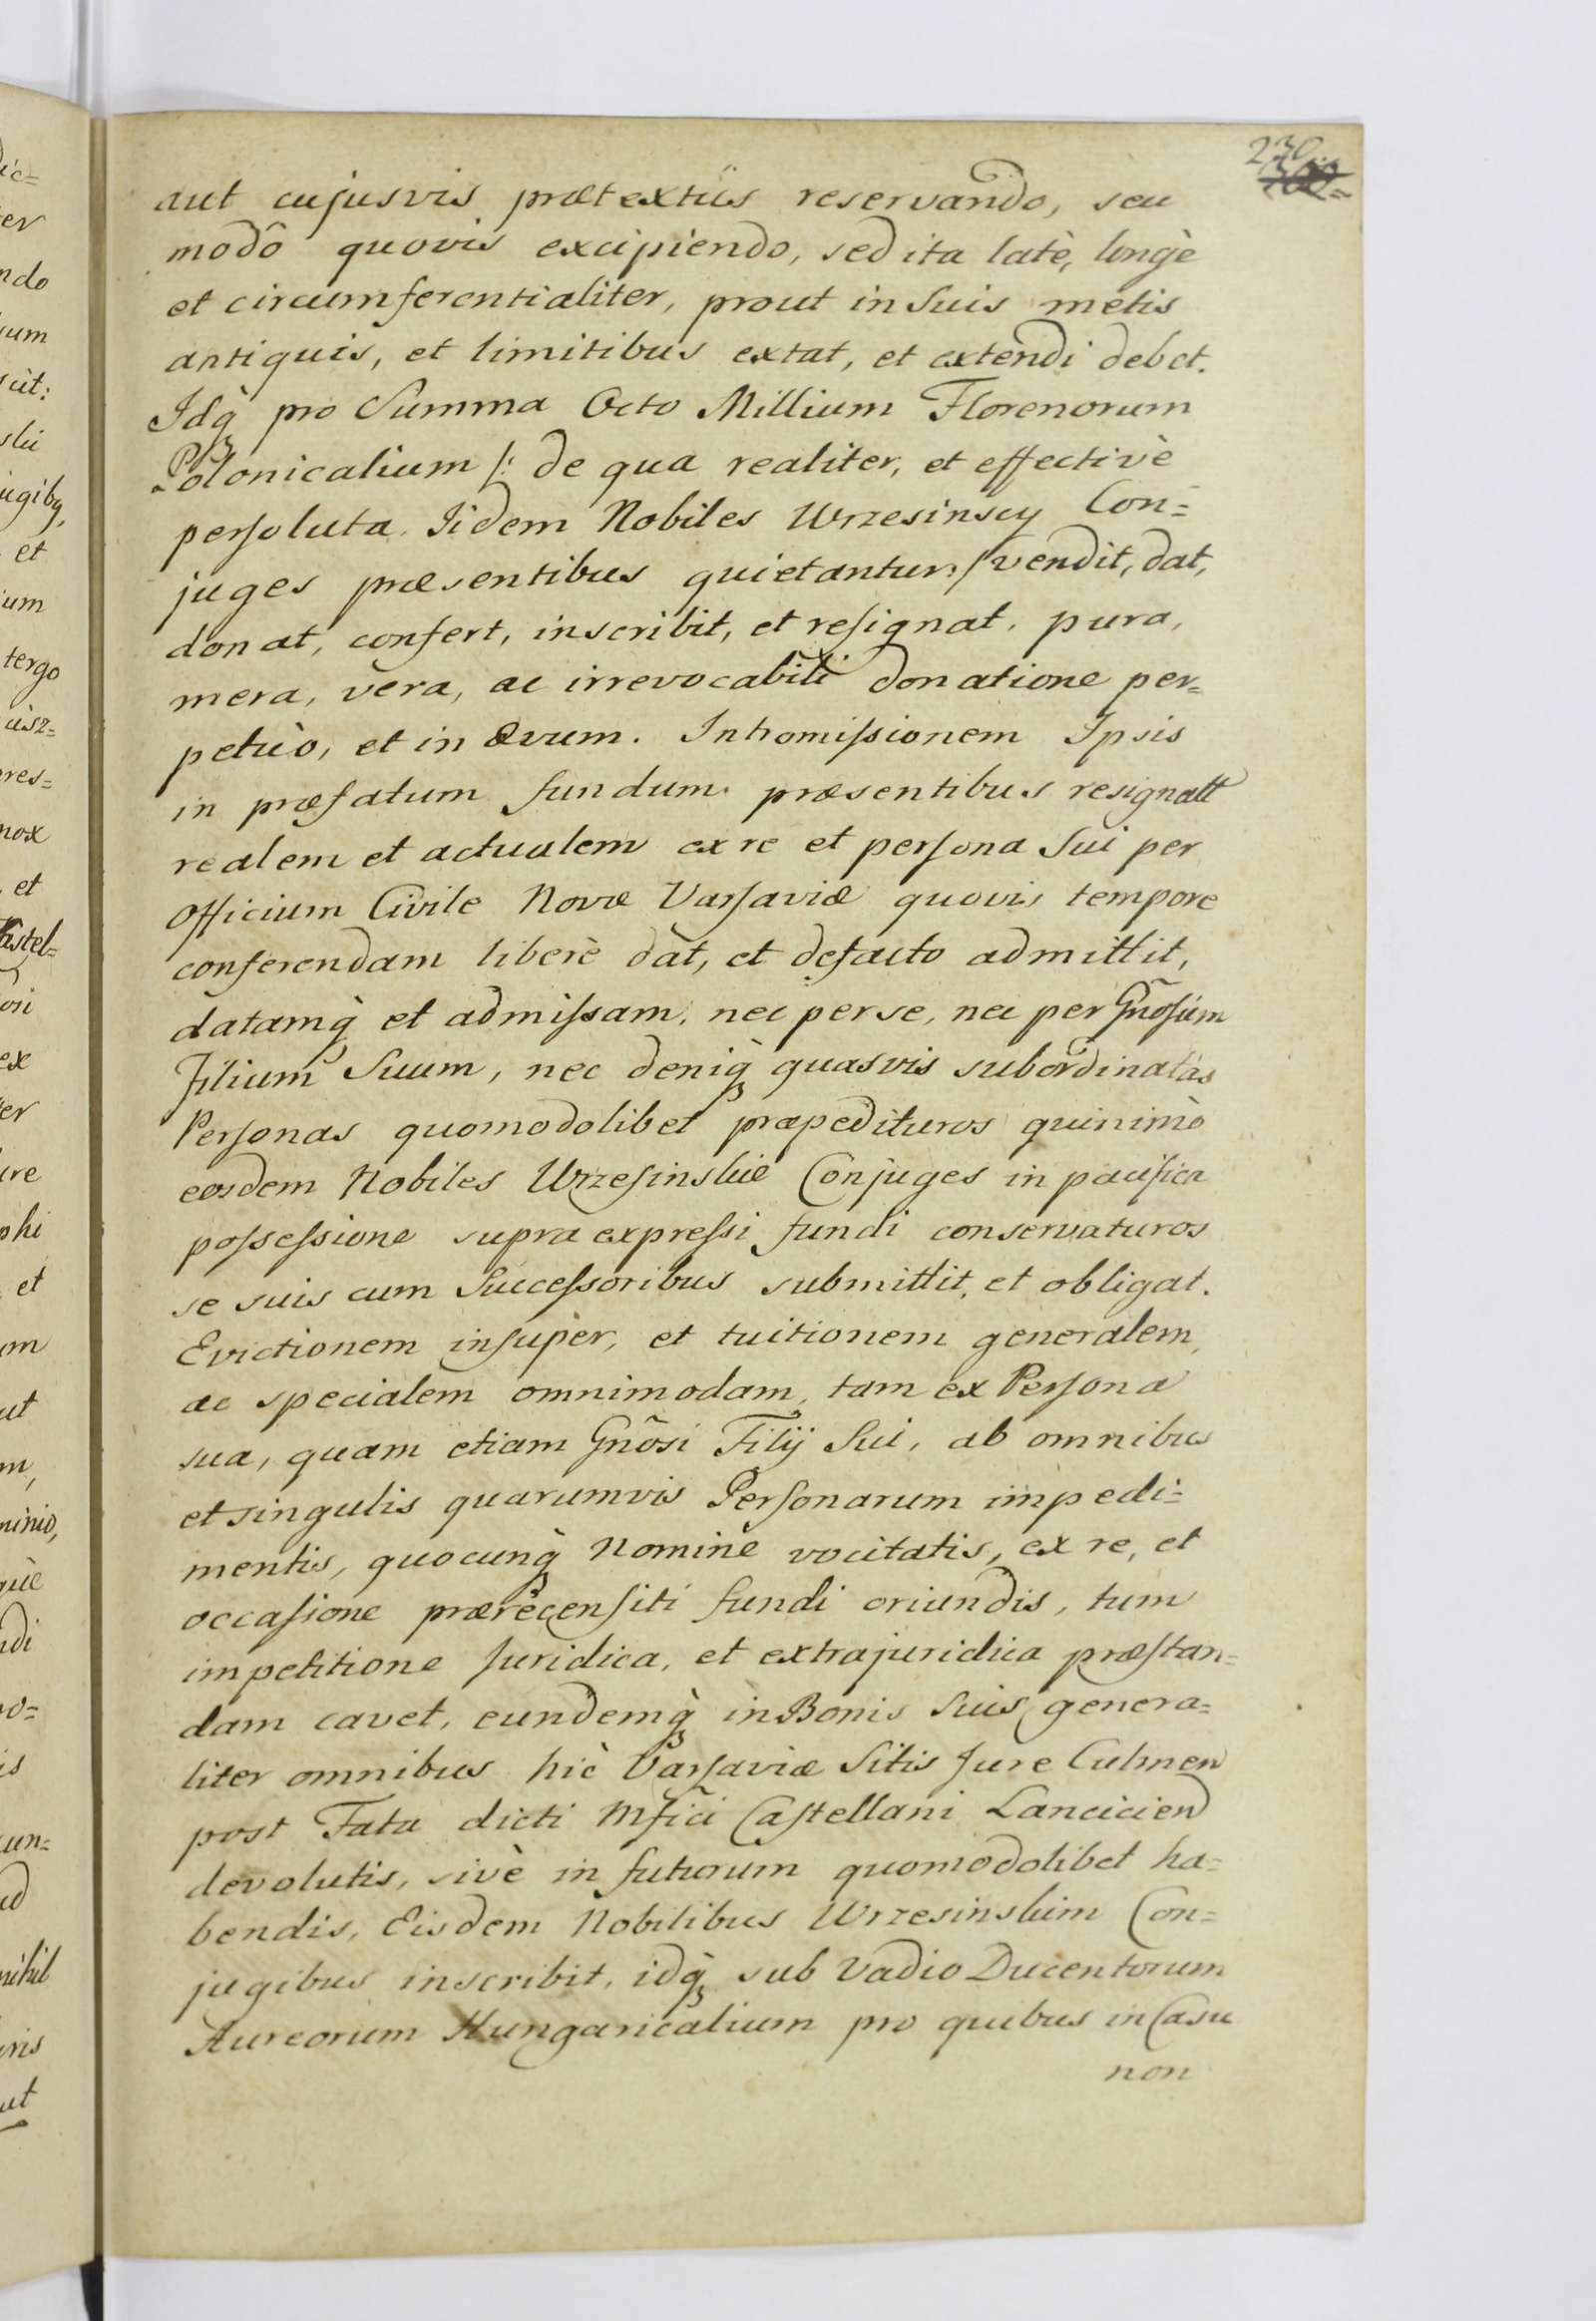 230
aut cujusvis prætextûs reservando, seu
modô quovis excipiendo, sed ita latè, longè
et circumferentialiter, prout in Suis metis
antiquis, et limitibus extat, et extendi debet.
Idq̀ pro Summa Octo Millium Florenorum
Polonicalium /: de qua realiter, et effectivè
persoluta Iidem Nobiles Wrzesinscy Con=
juges præsentibus quietantur :/ vendit, dat,
donat, confert, inscribit, et resignat. pura,
mera, vera, ac irrevocabili donatione per=
petuò, et in Ævum. Intromissionem Ipsis
in præfatum fundum præsentibus resignatt
realem et actualem ex re et persona Sui per
Officium Civile Novæ Varsaviæ quovis tempore
conferendam liberè dat, et defacto admittit,
datamq̀ et admissam, nec per se, nec per Gnõsum
Filium Suum, nec deniq̀ quasvis subordinatas
Personas quomodolibet præpedituros quinimò
eosdem Nobiles Wrzesinskie Conjuges in pacifica
possessione supra expressi fundi conservaturos
se suis cum Successoribus submittit, et obligat.
Evictionem insuper, et tuitionem generalem,
ac specialem omnimodam, tam ex Persona
sua, quam etiam Gnõsi Filij Sui, ab omnibus
et singulis quarumvis Personarum impedi=
mentis, quocunq̀ Nomine vocitatis, ex re, et
occasione prærecensiti fundi oriundis, tum
impetitione Juridica, et extrajuridica præstan=
dam cavet, eundemq̀ in Bonis Suis genera=
liter omnibus hìc Varsaviæ Sitis Jure Culmen
post Fata dicti Mfici Castellani Lancicien
devolutis, sivè in futurum quomodolibet ha=
bendis, Eisdem Nobilibus Wrzesinskim Con=
jugibus inscribit, idq̀ sub Vadio Ducentorum
Aureorum Hungaricalium pro quibus in Casu
non